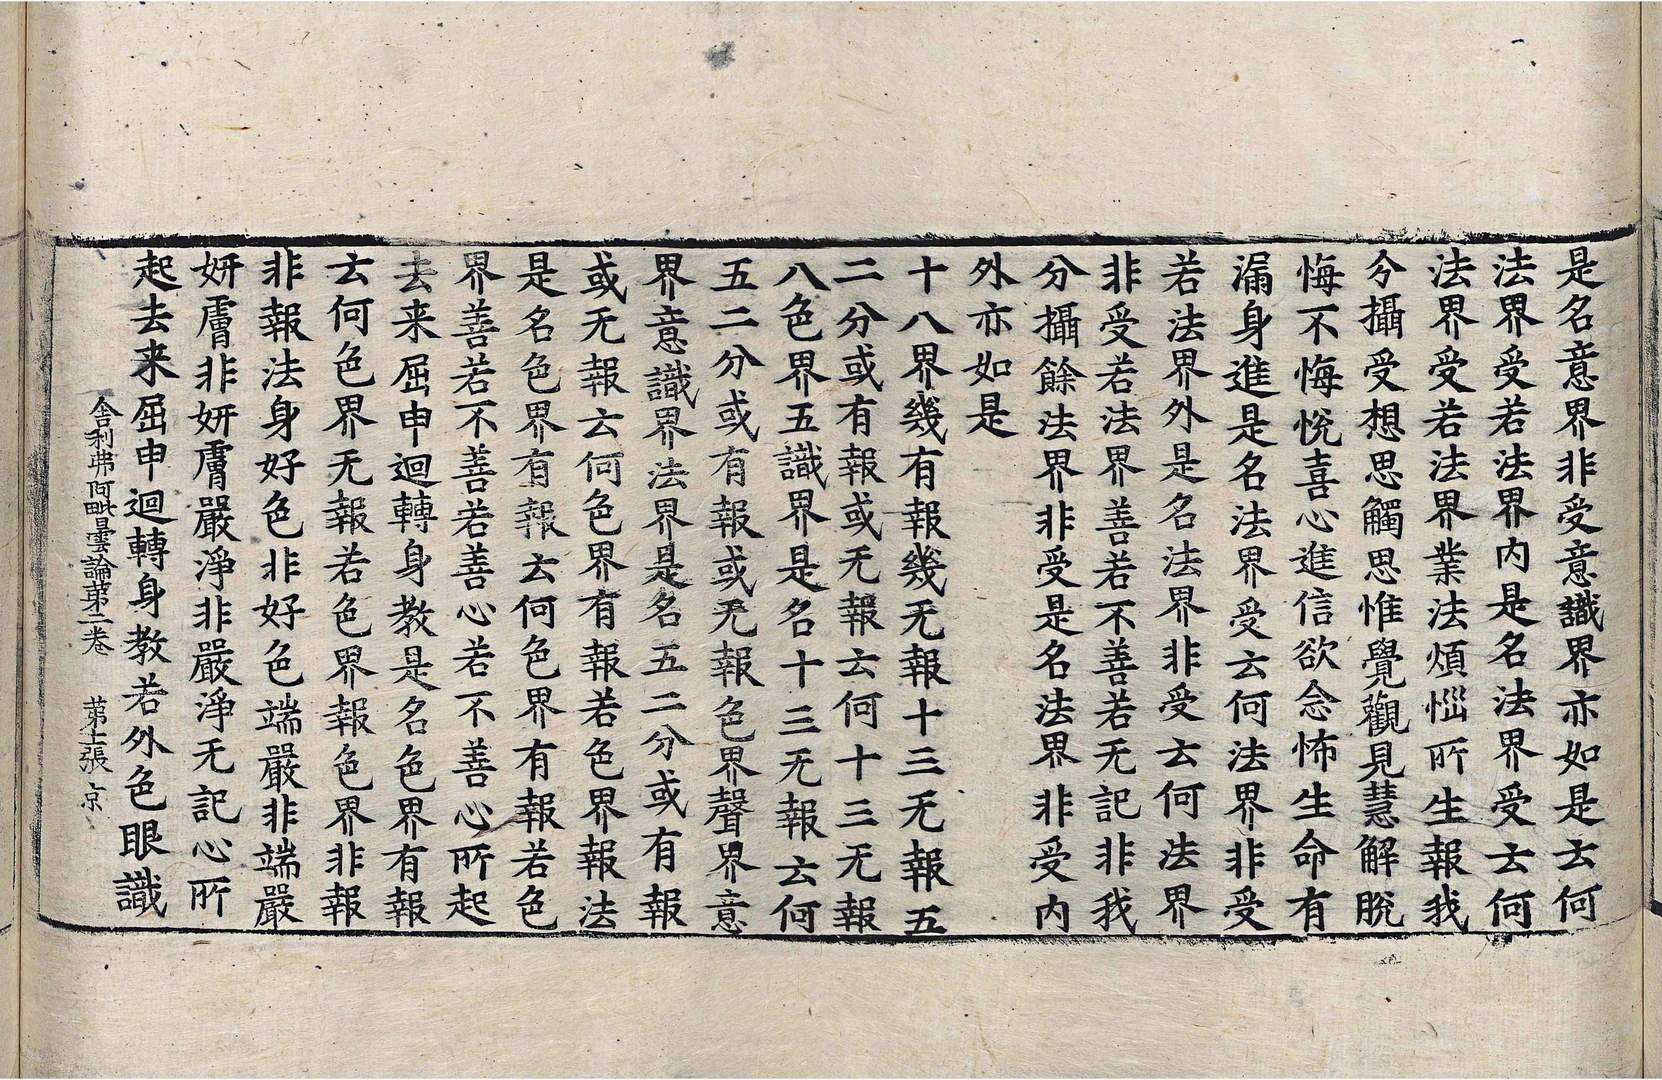 是名意界非受意識界亦如是云何
法界受若法界内是名法界受云何
法界受若法界業法煩惱所生報我
分攝受想思觸思惟覺觀見慧解脫
悔不悔悅喜心進信欲念怖生命有
漏身進是名法界受云何法界非受
若法界外是名法界非受云何法界
非受若法界善若不善若无記非我
分攝餘法界非受是名法界非受内
外亦如是
十八界幾有報幾无報十三无報五
二分或有報或无報云何十三无報
八色界五識界是名十三无報云何
五二分或有報或无報色界聲界意
界意識界法界是名五二分或有報
或无報云何色界有報若色界報法
是名色界有報云何色界有報若色
界善若不善若善心若不善心所起
去来屈申迴轉身教是名色界有報
云何色界无報若色界報色界非報
非報法身好色非好色端嚴非端嚴
妍膚非妍膚嚴淨非嚴淨无記心所
起去来屈申迴轉身教若外色眼識
舍利弗阿毗曇論第二卷 第十張 京